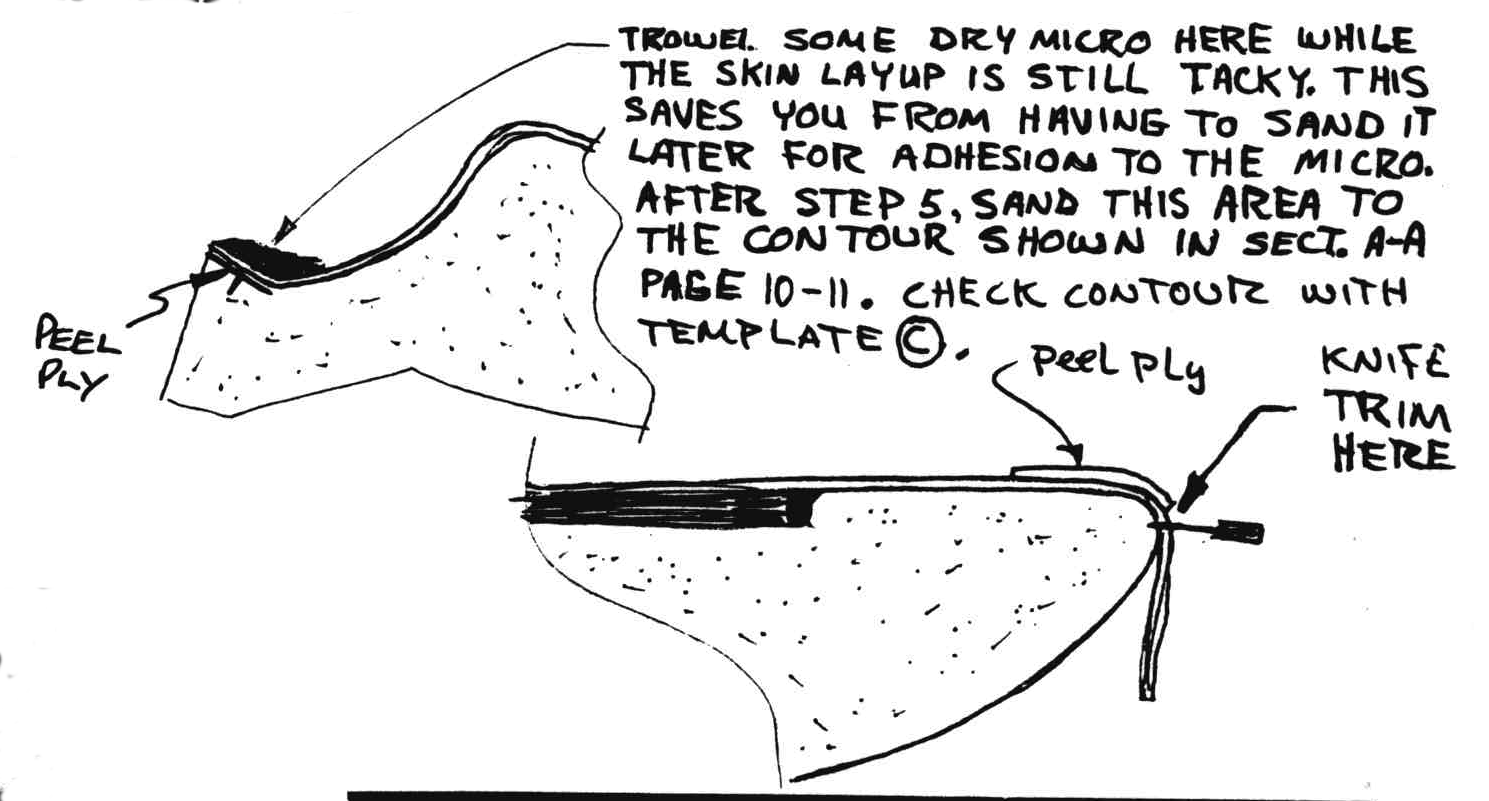 TROWEL SOME DRY MICRO HERE WHILE
THE SKIN LAYUP IS STILL TACKY. THIS
SAVES YOU FROM HAVING TO SAND IT
LATER FOR ADHESION TO THE MICRO.
AFTER STEP 5, SAND THIS AREA TO
THE CONTOUR SHOWN IN SECT. A-A
PAGE 10-11. CHECK CONTOUR WITH
TEMPLATE Ⓒ.
PEEL
PLY
peel ply
KNIFE
TRIM
HERE